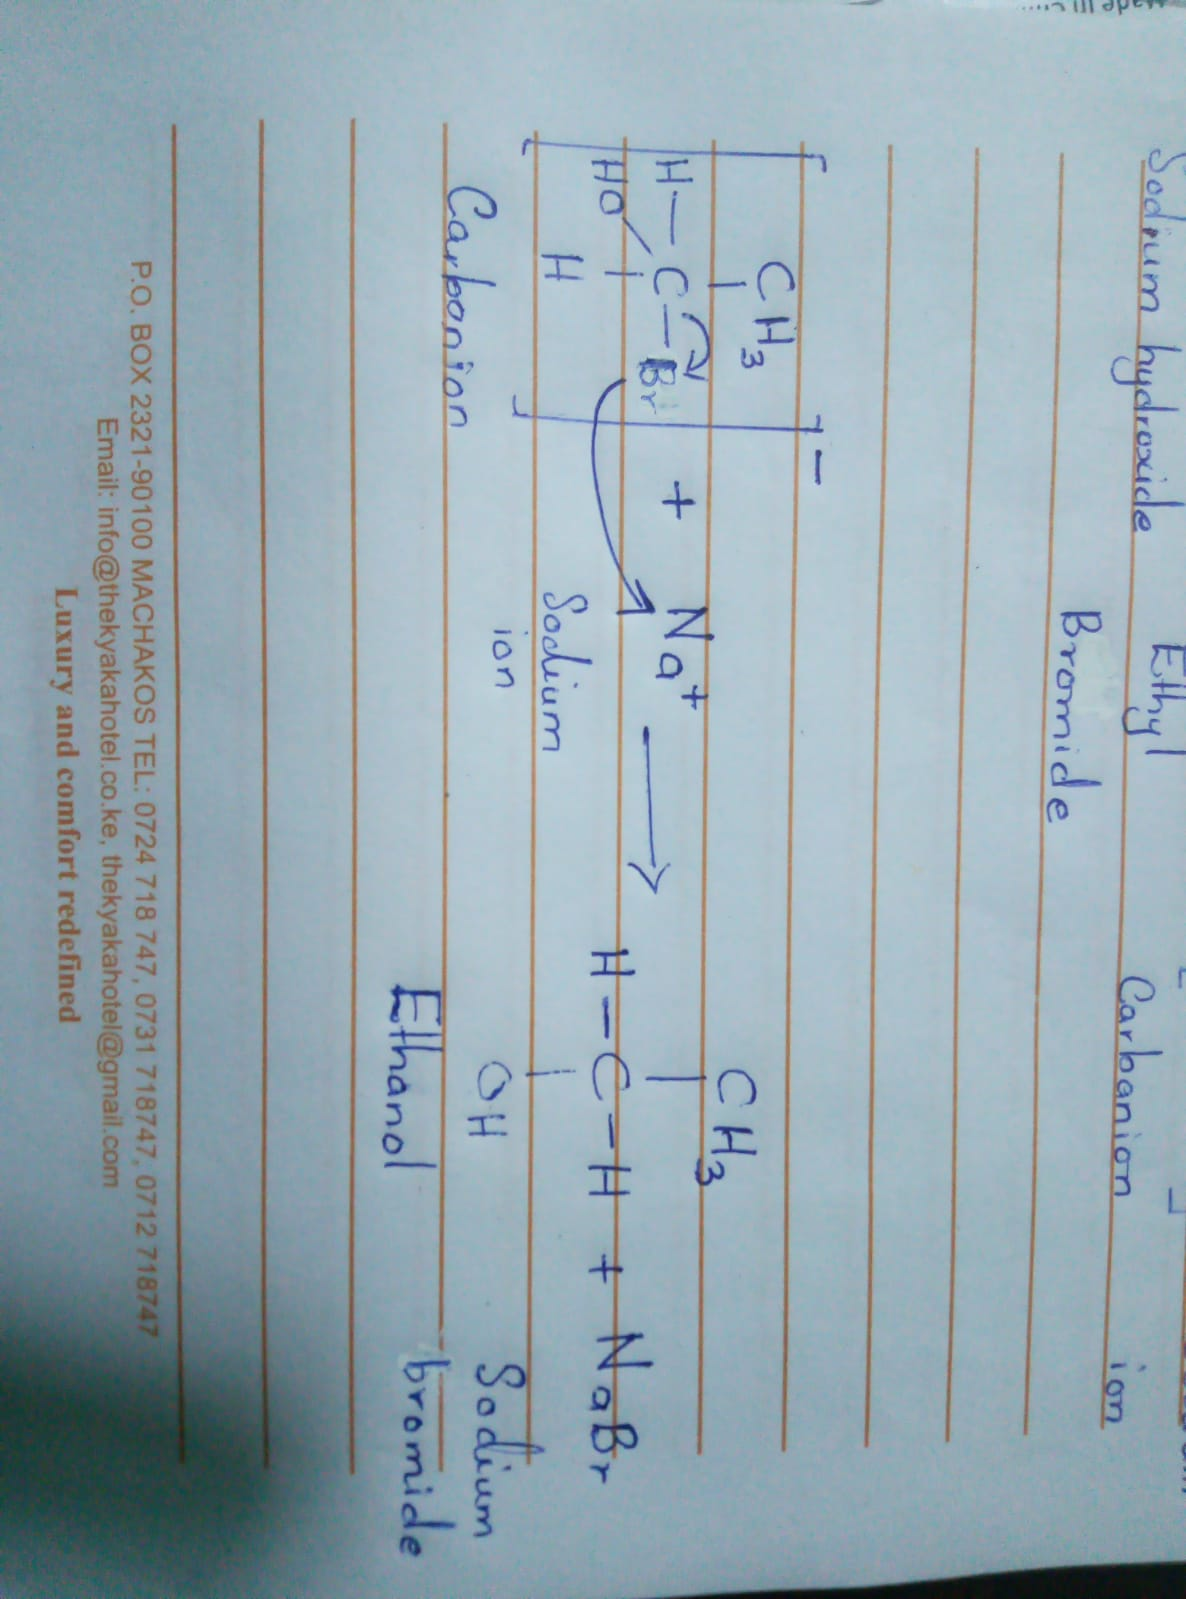 Sodium hydroxide Ethyl Carbanion ion
Bromide
CH3 − CH3
H—C—Br + Na+ ⟶ H—C—H + NaBr
HO
H Sodium OH Sodium
ion
Carbanion Ethanol bromide
P.O. BOX 2321-90100 MACHAKOS TEL: 0724 718 747, 0731 718747, 0712 718747
Email: info@thekyakahotel.co.ke, thekyakahotel@gmail.com
Luxury and comfort redefined